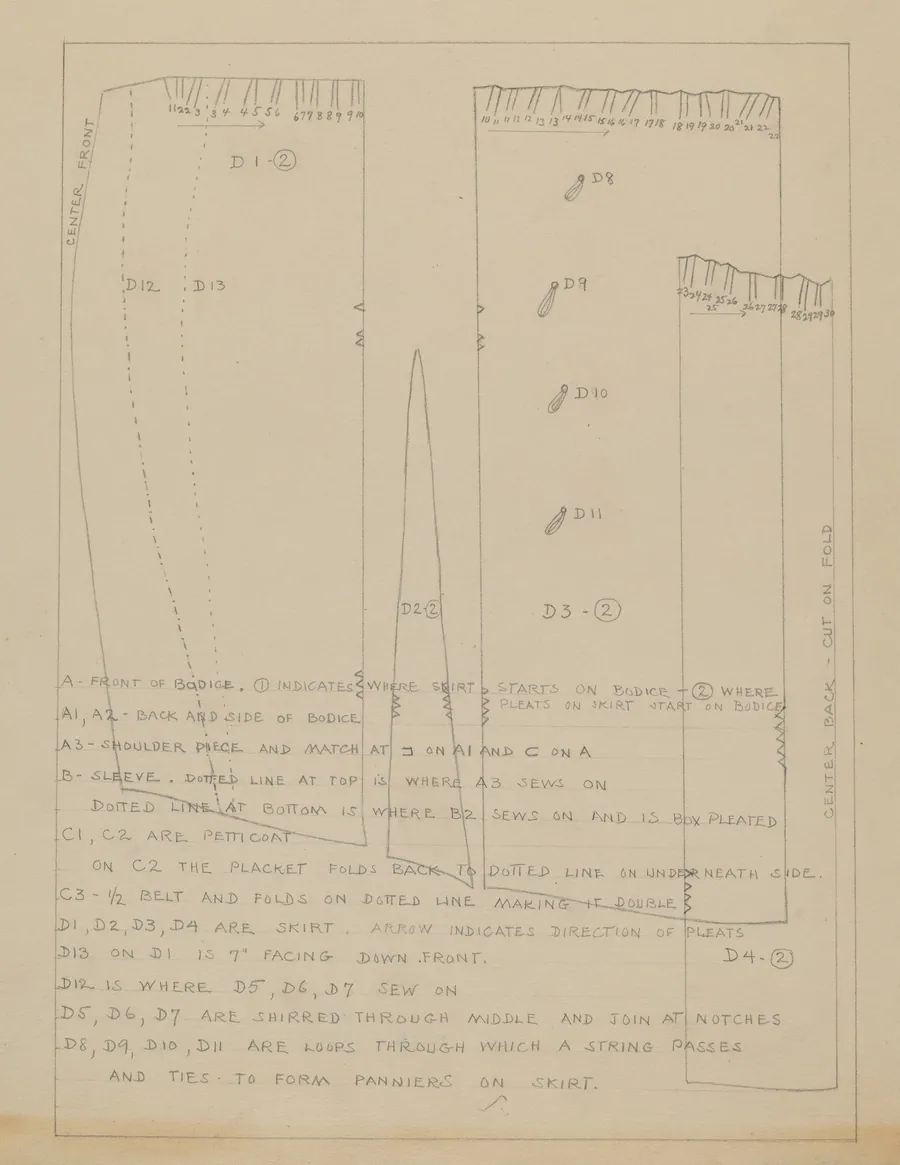 1 1 2 2 3 3 4 4 5 5 6 6 7 7 8 8 9 9 10
D 1 - ②
CENTER FRONT
D12
D13
10 11 11 11 12 12 13 13 14 14 15 15 16 16 17 17 18 18 19 19 20 20 21 21 22 22
D8
D9
D10
D11
23 24 24 25 25 26 26 27 27 28 28 29 29 30
D2-②
D3 - ②
CENTER BACK - CUT ON FOLD
A - FRONT OF BODICE. ① INDICATES WHERE SKIRT STARTS ON BODICE - ② WHERE
PLEATS ON SKIRT START ON BODICE
A1, A2 - BACK AND SIDE OF BODICE
A3 - SHOULDER PIECE AND MATCH AT ⊐ ON A1 AND ⊏ ON A
B - SLEEVE. DOTTED LINE AT TOP IS WHERE A3 SEWS ON
DOTTED LINE AT BOTTOM IS WHERE B2 SEWS ON AND IS BOX PLEATED
C1, C2 ARE PETTICOAT
ON C2 THE PLACKET FOLDS BACK TO DOTTED LINE ON UNDERNEATH SIDE.
C3 - 1/2 BELT AND FOLDS ON DOTTED LINE MAKING IT DOUBLE
D1, D2, D3, D4 ARE SKIRT. ARROW INDICATES DIRECTION OF PLEATS
D13 ON D1 IS 7" FACING DOWN FRONT.
D4 - ②
D12 IS WHERE D5, D6, D7 SEW ON
D5, D6, D7 ARE SHIRRED THROUGH MIDDLE AND JOIN AT NOTCHES
D8, D9, D10, D11 ARE LOOPS THROUGH WHICH A STRING PASSES
AND TIES - TO FORM PANNIERS ON SKIRT.